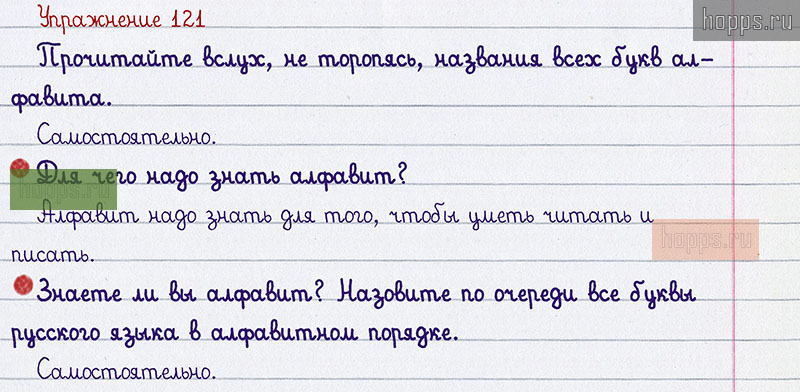 Упражнение 121
hopps.ru
Прочитайте вслух, не торопясь, названия всех букв ал-
фавита.
Самостоятельно.
Для чего надо знать алфавит?
hopps.ru
Алфавит надо знать для того, чтобы уметь читать и
hopps.ru
писать.
Знаете ли вы алфавит? Назовите по очереди все буквы
русского языка в алфавитном порядке.
Самостоятельно.